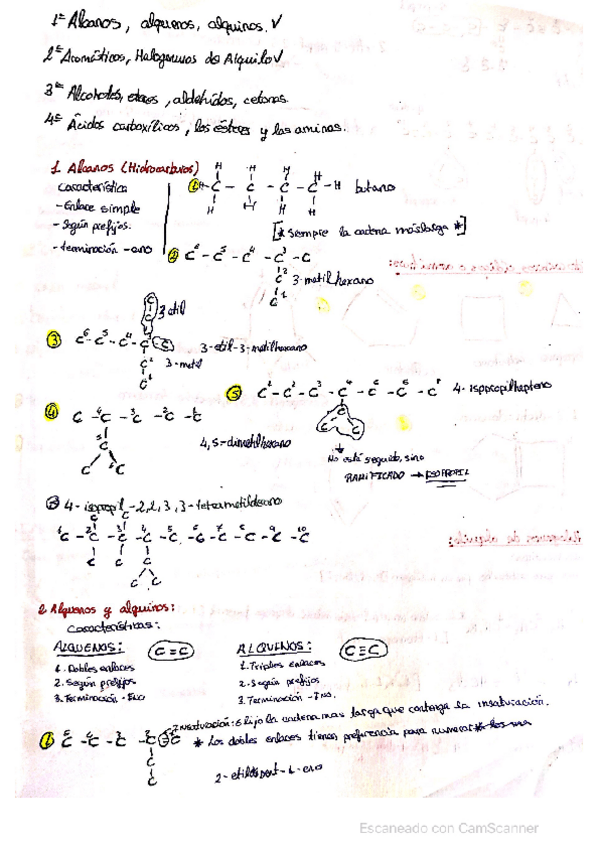 1º Alcanos, alquenos, alquinos. ✓
2º Aromáticos, Halogenuros de Alquilo ✓
3º Alcoholes, éteres, aldehídos, cetonas.
4º Ácidos carboxílicos, los ésteres y las aminas.
1. Alcanos (Hidrocarburos)
Característica
- Enlace simple
- Según prefijos.
- terminación -ano
① butano
[* siempre la cadena más larga *]
② C⁶ - C⁵ - C⁴ - C³ - C
3-metilhexano
3 etil
③ C⁶ - C⁵ - C⁴ - C³ - C
3-etil-3-metilhexano
3-metil
⑤ 4-isopropilhepteno
④ C - C⁴ - C³ - C² - C¹
4,5-dimetilhexano
No está seguido, sino
RAMIFICADO → ISOPROPIL
4-isopropil-2,2,3,3-tetrametildecano
2 Alquenos y alquinos:
Características:
ALQUENOS: C=C
1. Dobles enlaces
2. Según prefijos
3. Terminación -Eno
ALQUENOS: C≡C
1. Triples enlaces
2. Según prefijos
3. Terminación -Ino.
Insaturación: Elijo la cadena mas larga que contenga la insaturación.
* Los dobles enlaces tienen preferencia para numerar *
2-etilpent-1-eno
Escaneado con CamScanner